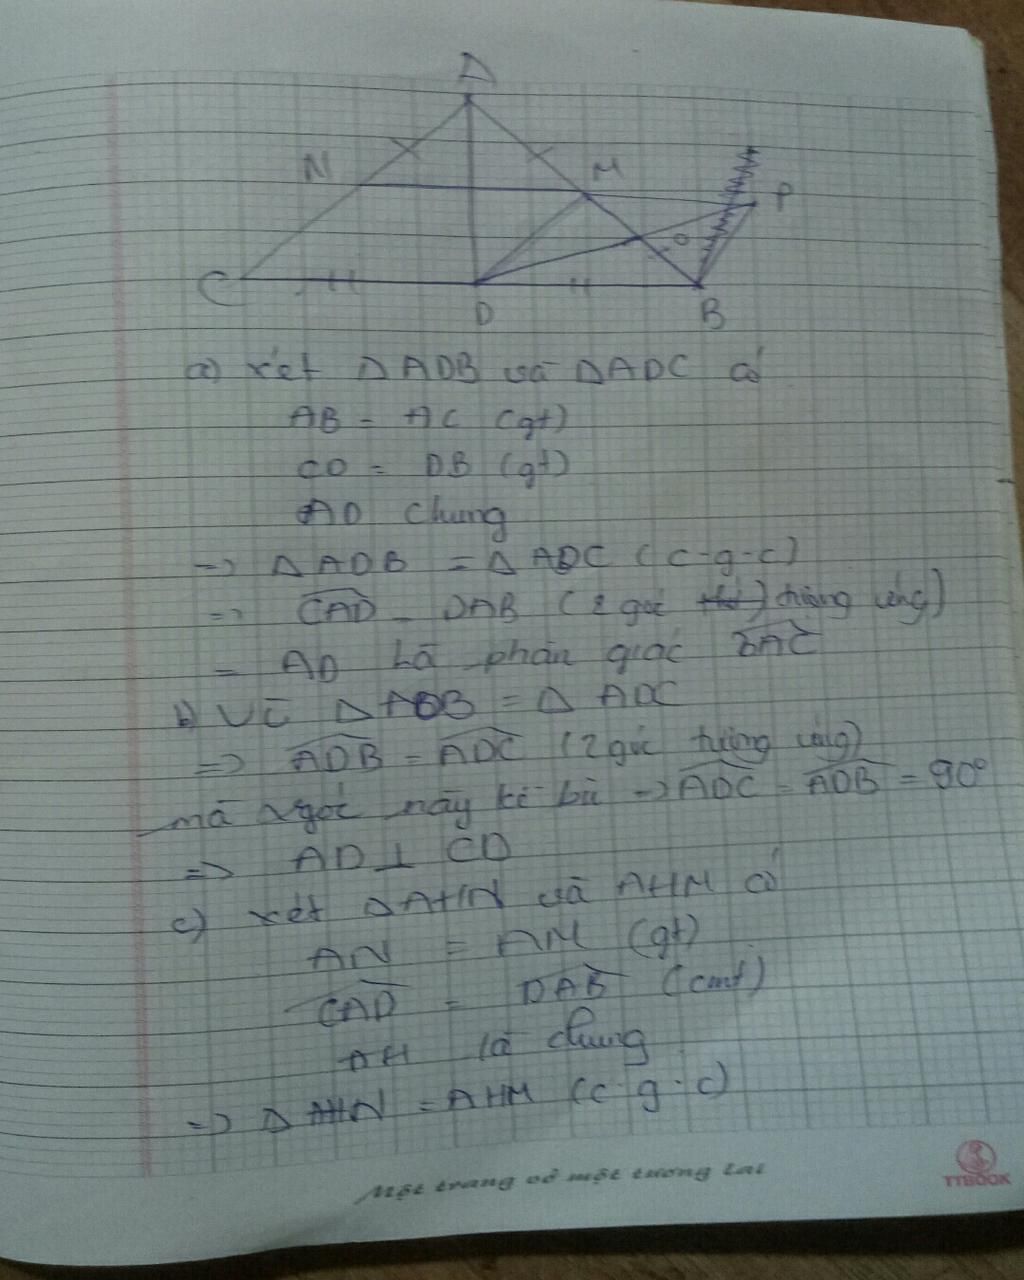 A
N
M
P
O
C
D
B
a) xét ΔADB và ΔADC có
AB = AC (gt)
CD = DB (gt)
AD chung
=> ΔADB = ΔADC (c-g-c)
=> CAD = DAB (2 góc tương ứng)
= AD là phân giác BAC
b) Vì ΔADB = ΔADC
=> ADB = ADC (2 góc tương ứng)
mà 2 góc này kề bù => ADC = ADB = 90°
=> AD ⊥ CD
c) xét ΔAHN và AHM có
AN = AM (gt)
CAD = DAB (cmt)
AH là chung
=> ΔAHN = AHM (c.g.c)
Một trang vở một tương lai
TTBOOK